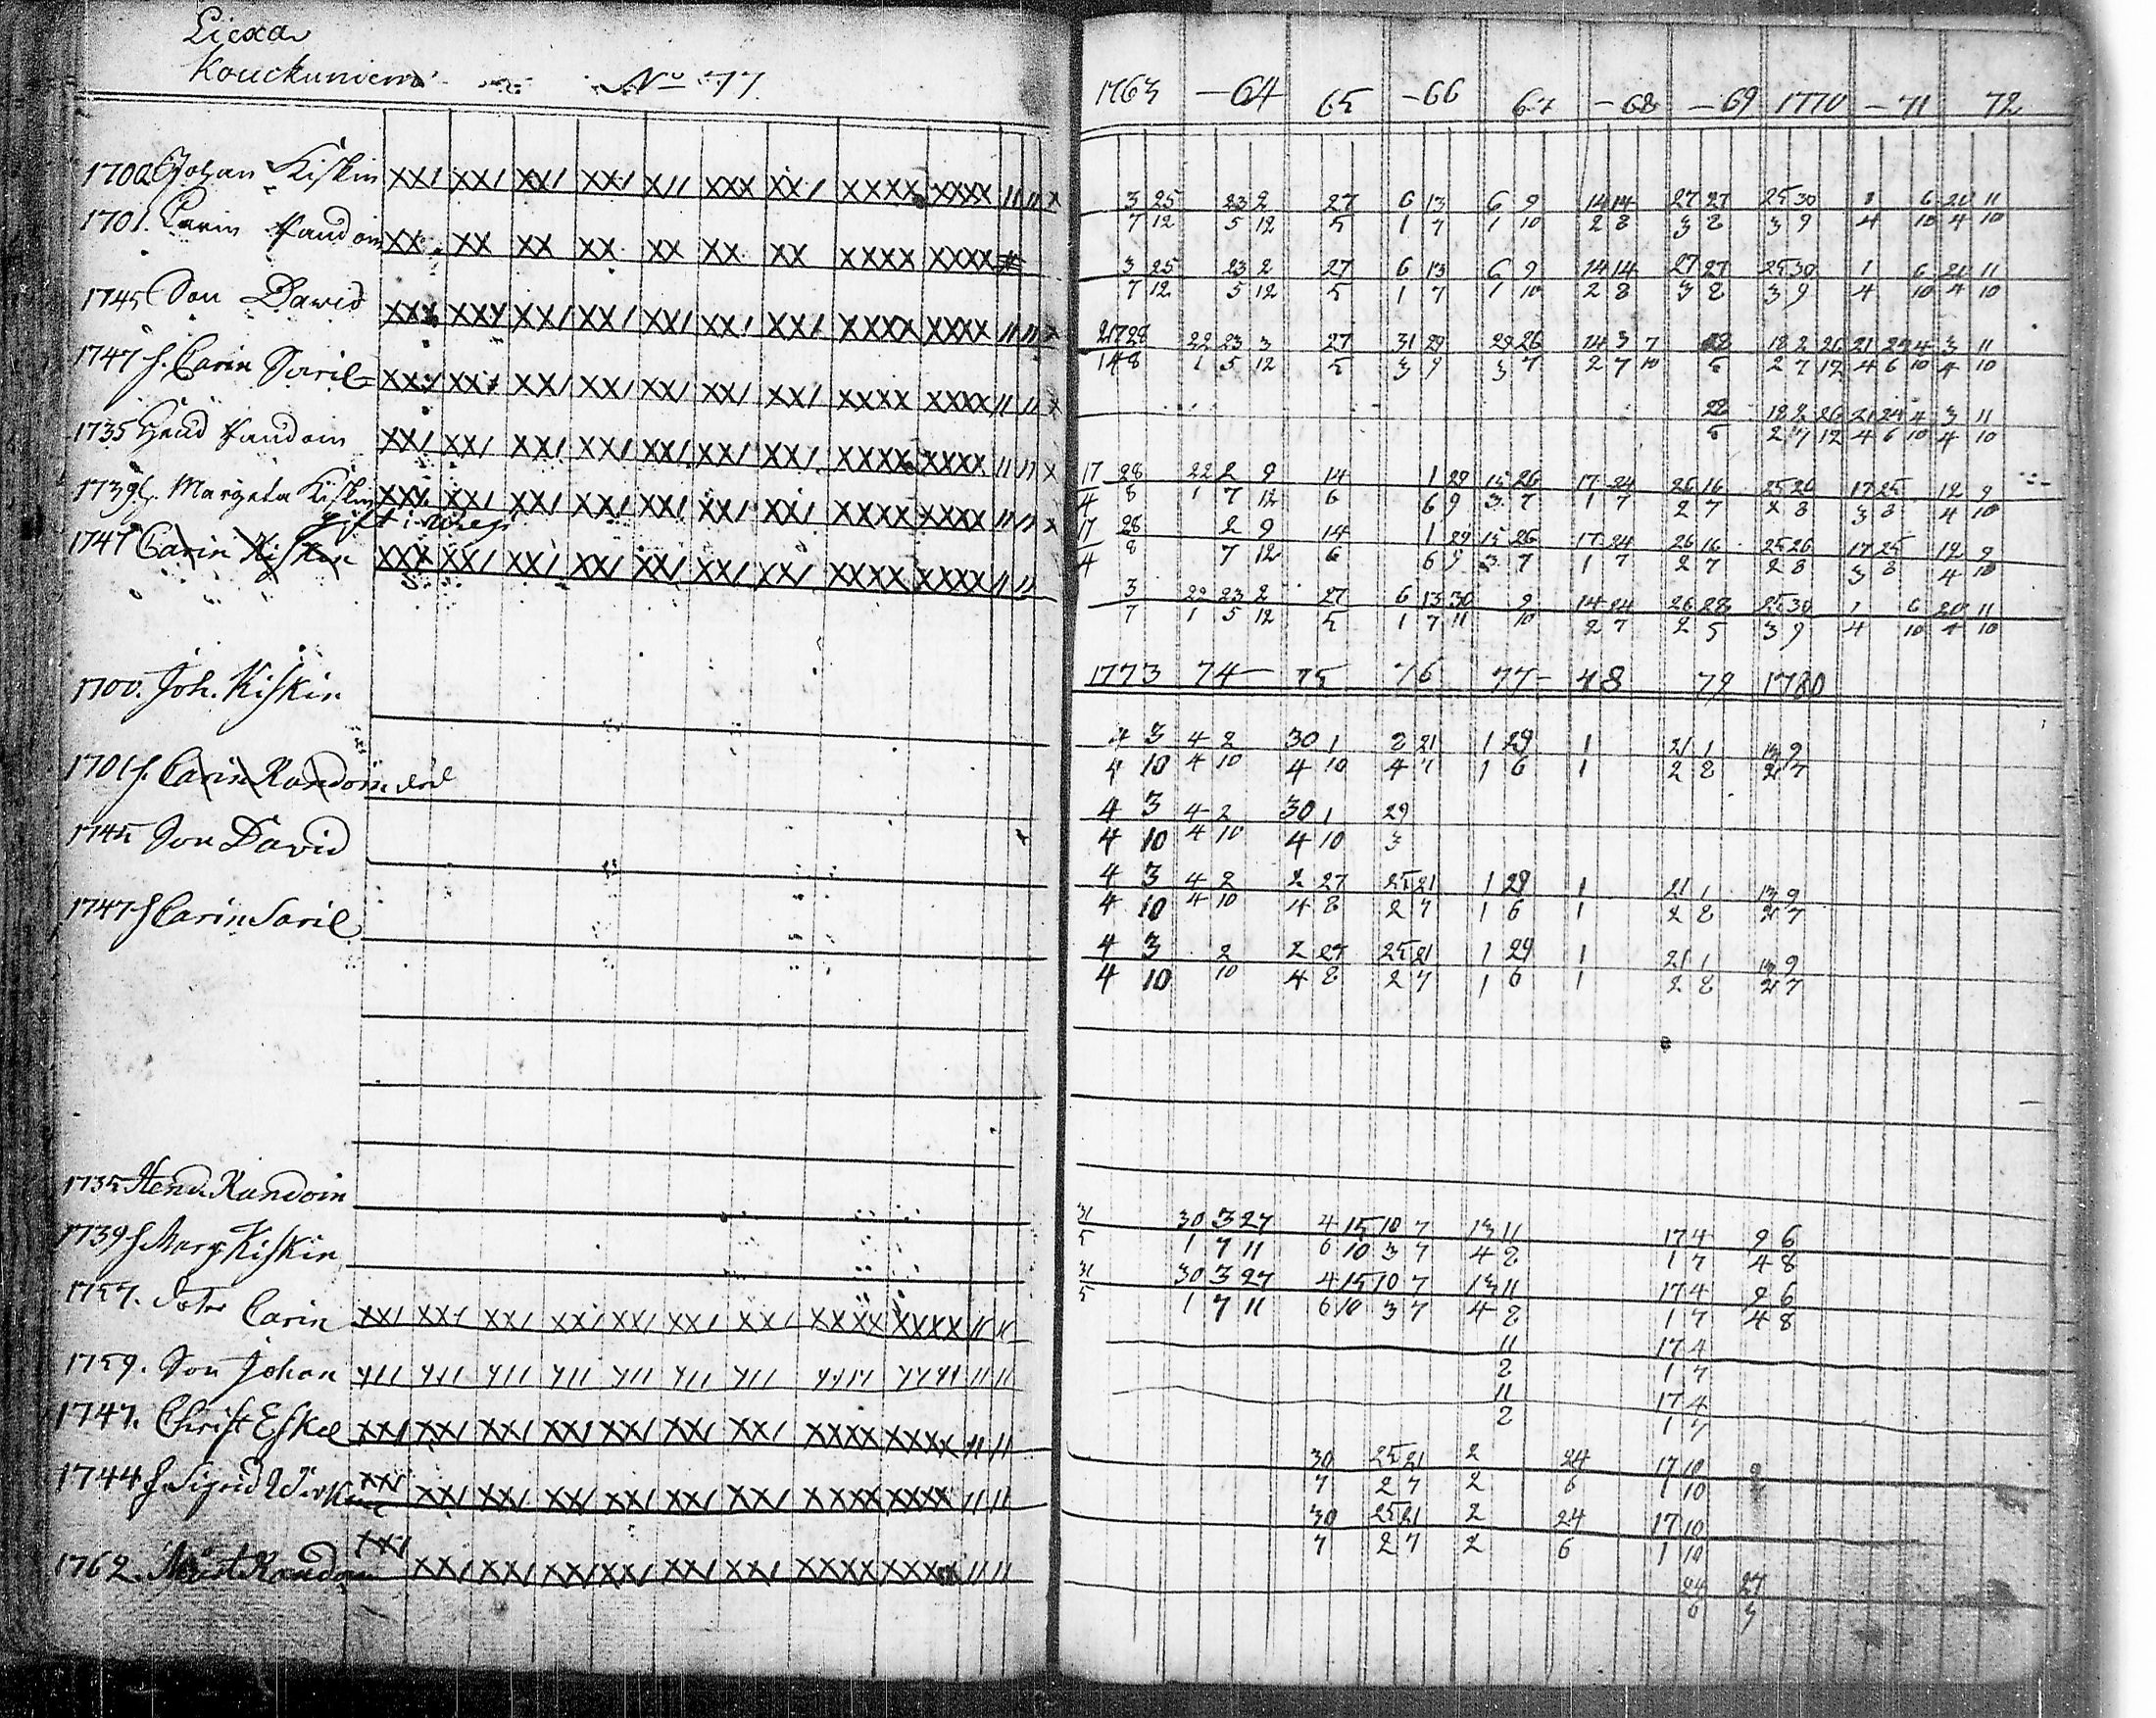 Liexa
Kouckuniemi No 77
1763 -64 65 -66 67 -68 -69 1770 -71 72
1700 Johan Kiskin XX/ XX/ XX/ XX/ X// XXX XX/ XXXX XXXX // // X
3 25 23 2 27 6 13 6 9 14 14 27 27 25 30 1 6 20 11
7 12 5 12 5 1 7 1 10 2 8 3 8 3 9 4 10 4 10
1701. Carin Raudoin XX XX XX XX XX XX XX XXXX XXXX
3 25 23 2 27 6 13 6 9 14 14 27 27 25 30 1 6 20 11
7 12 5 12 5 1 7 1 10 2 8 3 8 3 9 4 10 4 10
1745 Son David XXX XXX XX/ XX/ XX/ XX/ XX/ XXXX XXXX // // X
22 23 3 27 31 29 29 26 14 3 7 28 18 2 26 21 29 4 3 11
1 5 12 5 3 9 3 7 2 7 10 5 2 7 12 4 6 10 4 10
1747 h. Carin Saril XX/ XX/ XX/ XX/ XX/ XX/ XX/ XXXX XXXX // // X
28 18 2 26 21 29 4 3 11
5 2 7 12 4 6 10 4 10
1735 Hind Raudoin XX/ XX/ XX/ XX/ XX/ XX/ XX/ XXXX XXXX // // X
17 28 22 2 9 14 1 29 15 26 17 24 26 16 25 26 17 25 12 9
4 8 1 7 12 6 6 9 3 7 1 7 2 7 2 8 3 8 4 10
1739 h. Margeta Kiskin XXX XX/ XX/ XX/ XX/ XX/ XX/ XXXX XXXX // // X
17 28 2 9 14 1 29 15 26 17 24 26 16 25 26 17 25 12 9
4 8 7 12 6 6 9 3 7 1 7 2 7 2 8 3 8 4 10
gift i
1747 Carin Kiskin XXX XX/ XX/ XX/ XX/ XX/ XX/ XXXX XXXX // //
3 22 23 2 27 6 13 30 9 14 24 26 28 25 30 1 6 20 11
7 1 5 12 5 1 7 11 10 2 7 2 5 3 9 4 10 4 10
1773 74 75 76 77 78 79 1780
1700. Joh. Kiskin
4 3 4 2 30 1 2 21 1 29 1 21 1 9
4 10 4 10 4 10 4 7 1 6 1 2 8 7
1701 h. Carin Raudoin död
4 3 4 2 30 1 29
4 10 4 10 4 10 3
1745 Son David
4 3 4 2 2 27 25 21 1 29 1 21 1 9
4 10 4 10 4 8 2 7 1 6 1 2 8 7
1747 h Carin Saril
4 3 2 2 27 25 21 1 29 1 21 1 9
4 10 10 4 8 2 7 1 6 1 2 8 7
1735 Hend. Raudoin
31 30 3 27 4 15 10 7 13 11 17 4 9 6
5 1 7 11 6 10 3 7 4 2 1 7 4 8
1739 h Marg Kiskin
31 30 3 27 4 15 10 7 13 11 17 4 9 6
5 1 7 11 6 10 3 7 4 2 1 7 4 8
1757. Doter Carin XX/ XX/ XX/ XX/ XX/ XX/ XX/ XXXX XXXX // //
11 17 4
2 1 7
1759. Son Johan
11 17 4
2 1 7
1747. Christ Eskel XX/ XX/ XX/ XX/ XX/ XX/ XX/ XXXX XXXX // //
30 25 21 2 24 17 10
7 2 7 2 6 1 10
1744 h. Sigrid XX/ XX/ XX/ XX/ XX/ XX/ XX/ XXXX XXXX // //
30 25 21 2 24 17 10
7 2 7 2 6 1 10
1762. Raudoin XX/ XX/ XX/ XX/ XX/ XX/ XX/ XXXX XXXX // //
24 27